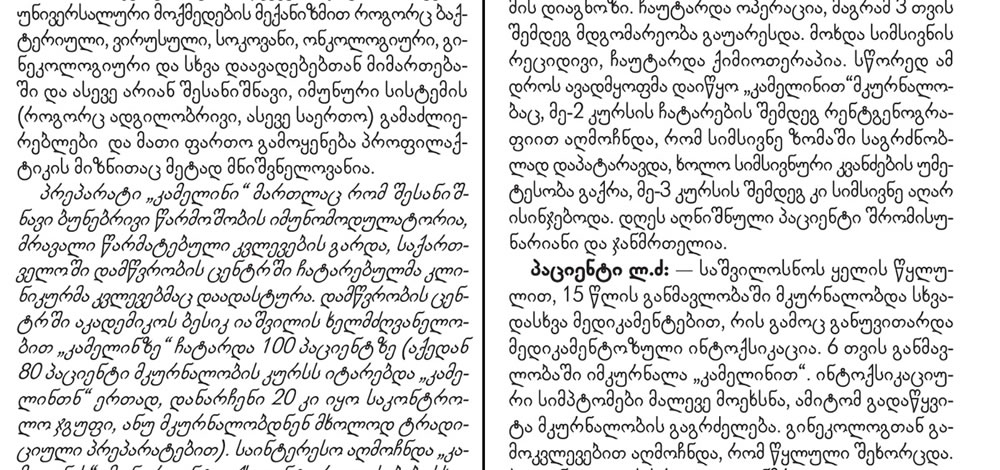 უნივერსალური მოქმედების მექანიზმით როგორც ბაქ-
ტერიული, ვირუსული, სოკოვანი, ონკოლოგიური, გი-
ნეკოლოგიური და სხვა დაავადებებთან მიმართება-
ში და ასევე არიან შესანიშნავი, იმუნური სისტემის
(როგორც ადგილობრივი, ასევე საერთო) გამაძლიე-
რებლები და მათი ფართო გამოყენება პროფილაქ-
ტიკის მიზნითაც მეტად მნიშვნელოვანია.
პრეპარატი „კამელინი“ მართლაც რომ შესანიშ-
ნავი ბუნებრივი წარმოშობის იმუნომოდულატორია,
მრავალი წარმატებული კვლევების გარდა, საქართ-
ველოში დამწვრობის ცენტრში ჩატარებულმა კლი-
ნიკურმა კვლევებმაც დაადასტურა. დამწვრობის ცენ-
ტრში აკადემიკოს ბესიკ იაშვილის ხელმძღვანელო-
ბით „კამელინზე“ ჩატარდა 100 პაციენტზე (აქედან
80 პაციენტი მკურნალობის კურსს იტარებდა „კამე-
ლინთნ“ ერთად, დანარჩენი 20 კი იყო საკონტრო-
ლო ჯგუფი, ანუ მკურნალობდნენ მხოლოდ ტრადი-
ციული პრეპარატებით). საინტერესო აღმოჩნდა „კა-
მის დიაგნოზი. ჩაუტარდა ოპერაცია, მაგრამ 3 თვის
შემდეგ მდგომარეობა გაუარესდა. მოხდა სიმსივნის
რეციდივი, ჩაუტარდა ქიმიოთერაპია. სწორედ ამ
დროს ავადმყოფმა დაიწყო „კამელინით“მკურნალო-
ბაც, მე-2 კურსის ჩატარების შემდეგ რენტგენოგრა-
ფიით აღმოჩნდა, რომ სიმსივნე ზომაში საგრძნობ-
ლად დაპატარავდა, ხოლო სიმსივნური კვანძების უმე-
ტესობა გაქრა, მე-3 კურსის შემდეგ კი სიმსივნე აღარ
ისინჯებოდა. დღეს აღნიშნული პაციენტი შრომისუ-
ნარიანი და ჯანმრთელია.
პაციენტი ლ.ძ: — საშვილოსნოს ყელის წყლუ-
ლით, 15 წლის განმავლობაში მკურნალობდა სხვა-
დასხვა მედიკამენტებით, რის გამოც განუვითარდა
მედიკამენტოზული ინტოქსიკაცია. 6 თვის განმავ-
ლობაში იმკურნალა „კამელინით“. ინტოქსიკაციუ-
რი სიმპტომები მალევე მოეხსნა, ამიტომ გადაწყვი-
ტა მკურნალობის გაგრძელება. გინეკოლოგთან გა-
მოკვლევებით აღმოჩნდა, რომ წყლული შეხორცდა.